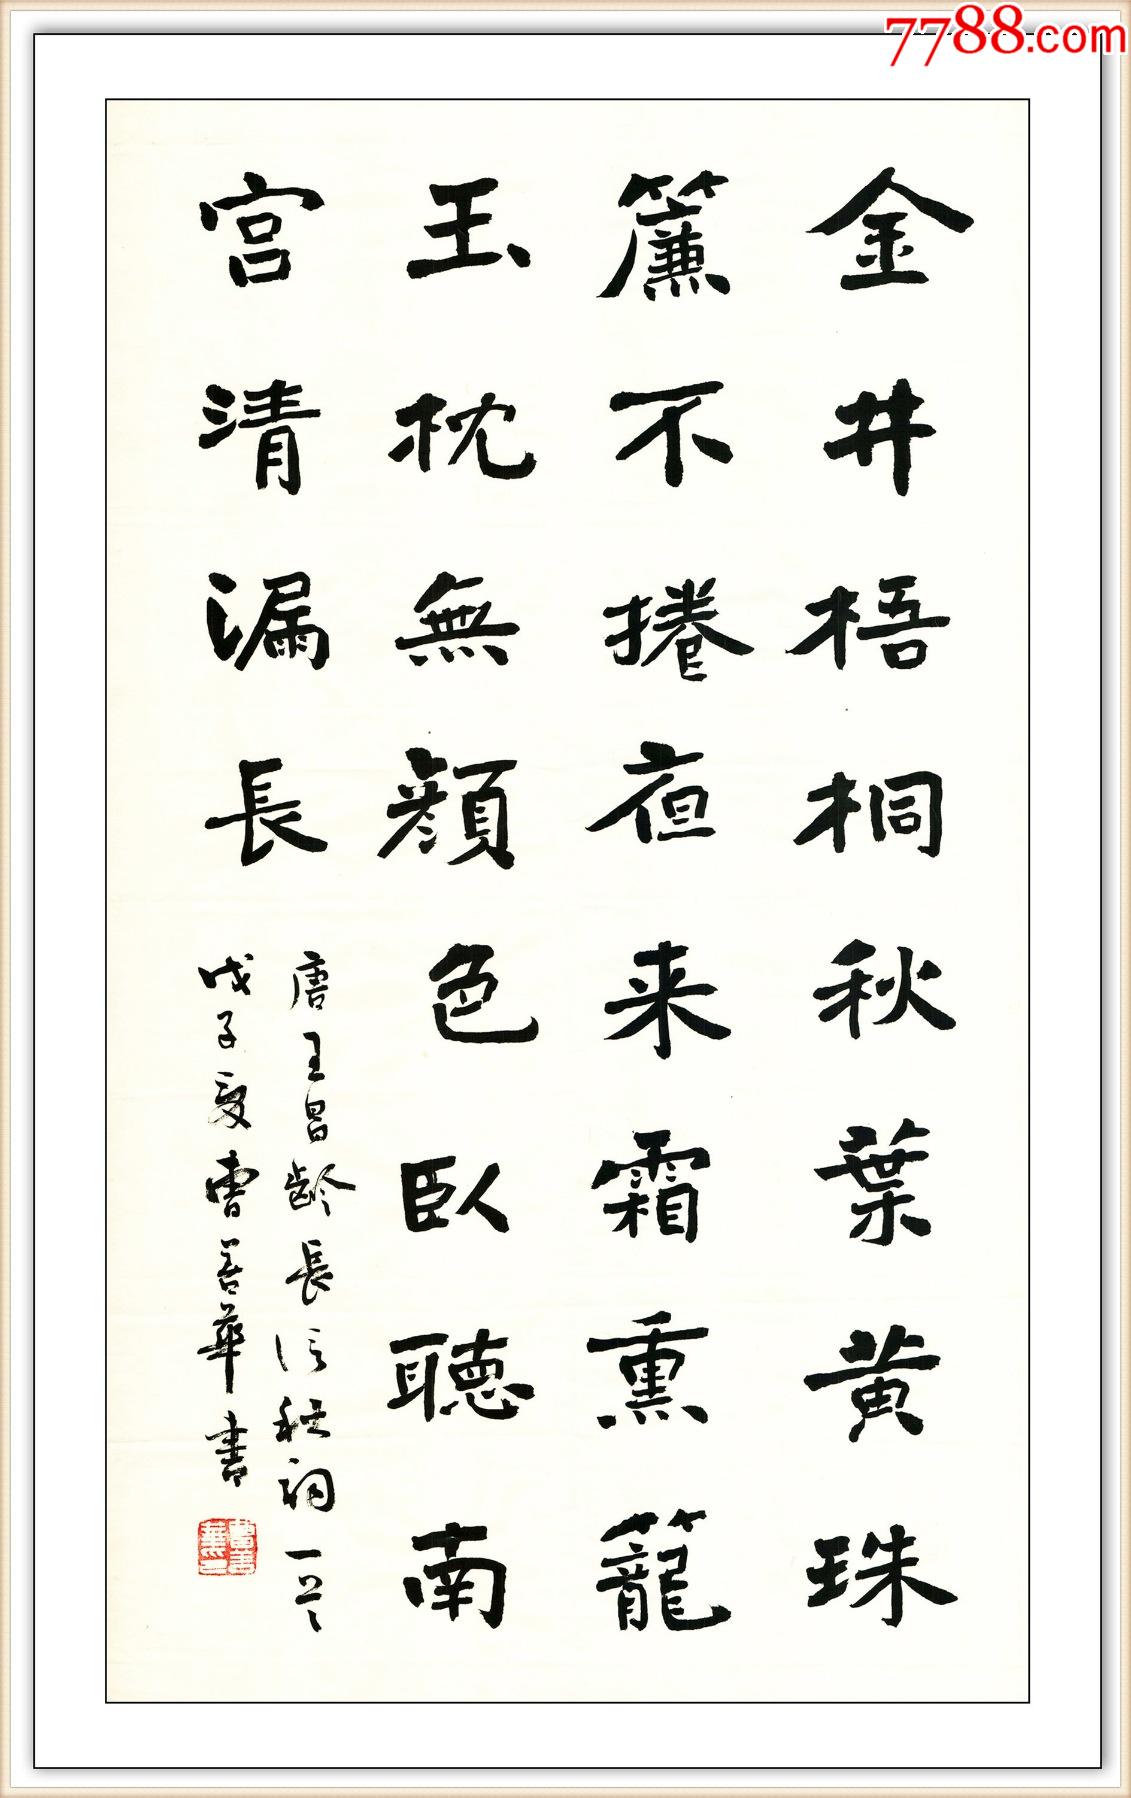 7788.com
金井梧桐秋葉黄珠
簾不捲夜来霜熏籠
玉枕無顔色臥聽南
宫清漏長
唐王昌龄長信秋詞一首
戊子夏曹善華書